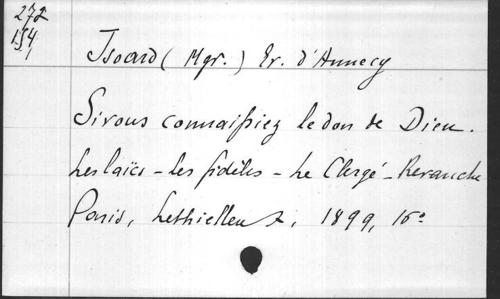 272
154
1
Isoard (Mgr.) Ev. d'Annecy
Si vous connaissiez le don de Dieu.
Les laïcs - Les fidèles - Le Clergé - Revanche
Paris, Lethielleux, 1899, 16º